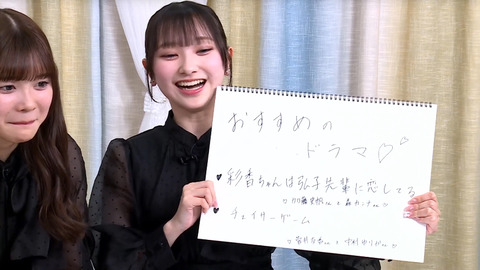 おすすめの
ドラマ♡♡
♥彩香ちゃんは弘子先輩に恋してる
♡加藤史帆さん × 森カンナさん♡
♥チェイサーゲーム
♡菅井友香さん × 中村ゆりかさん♡